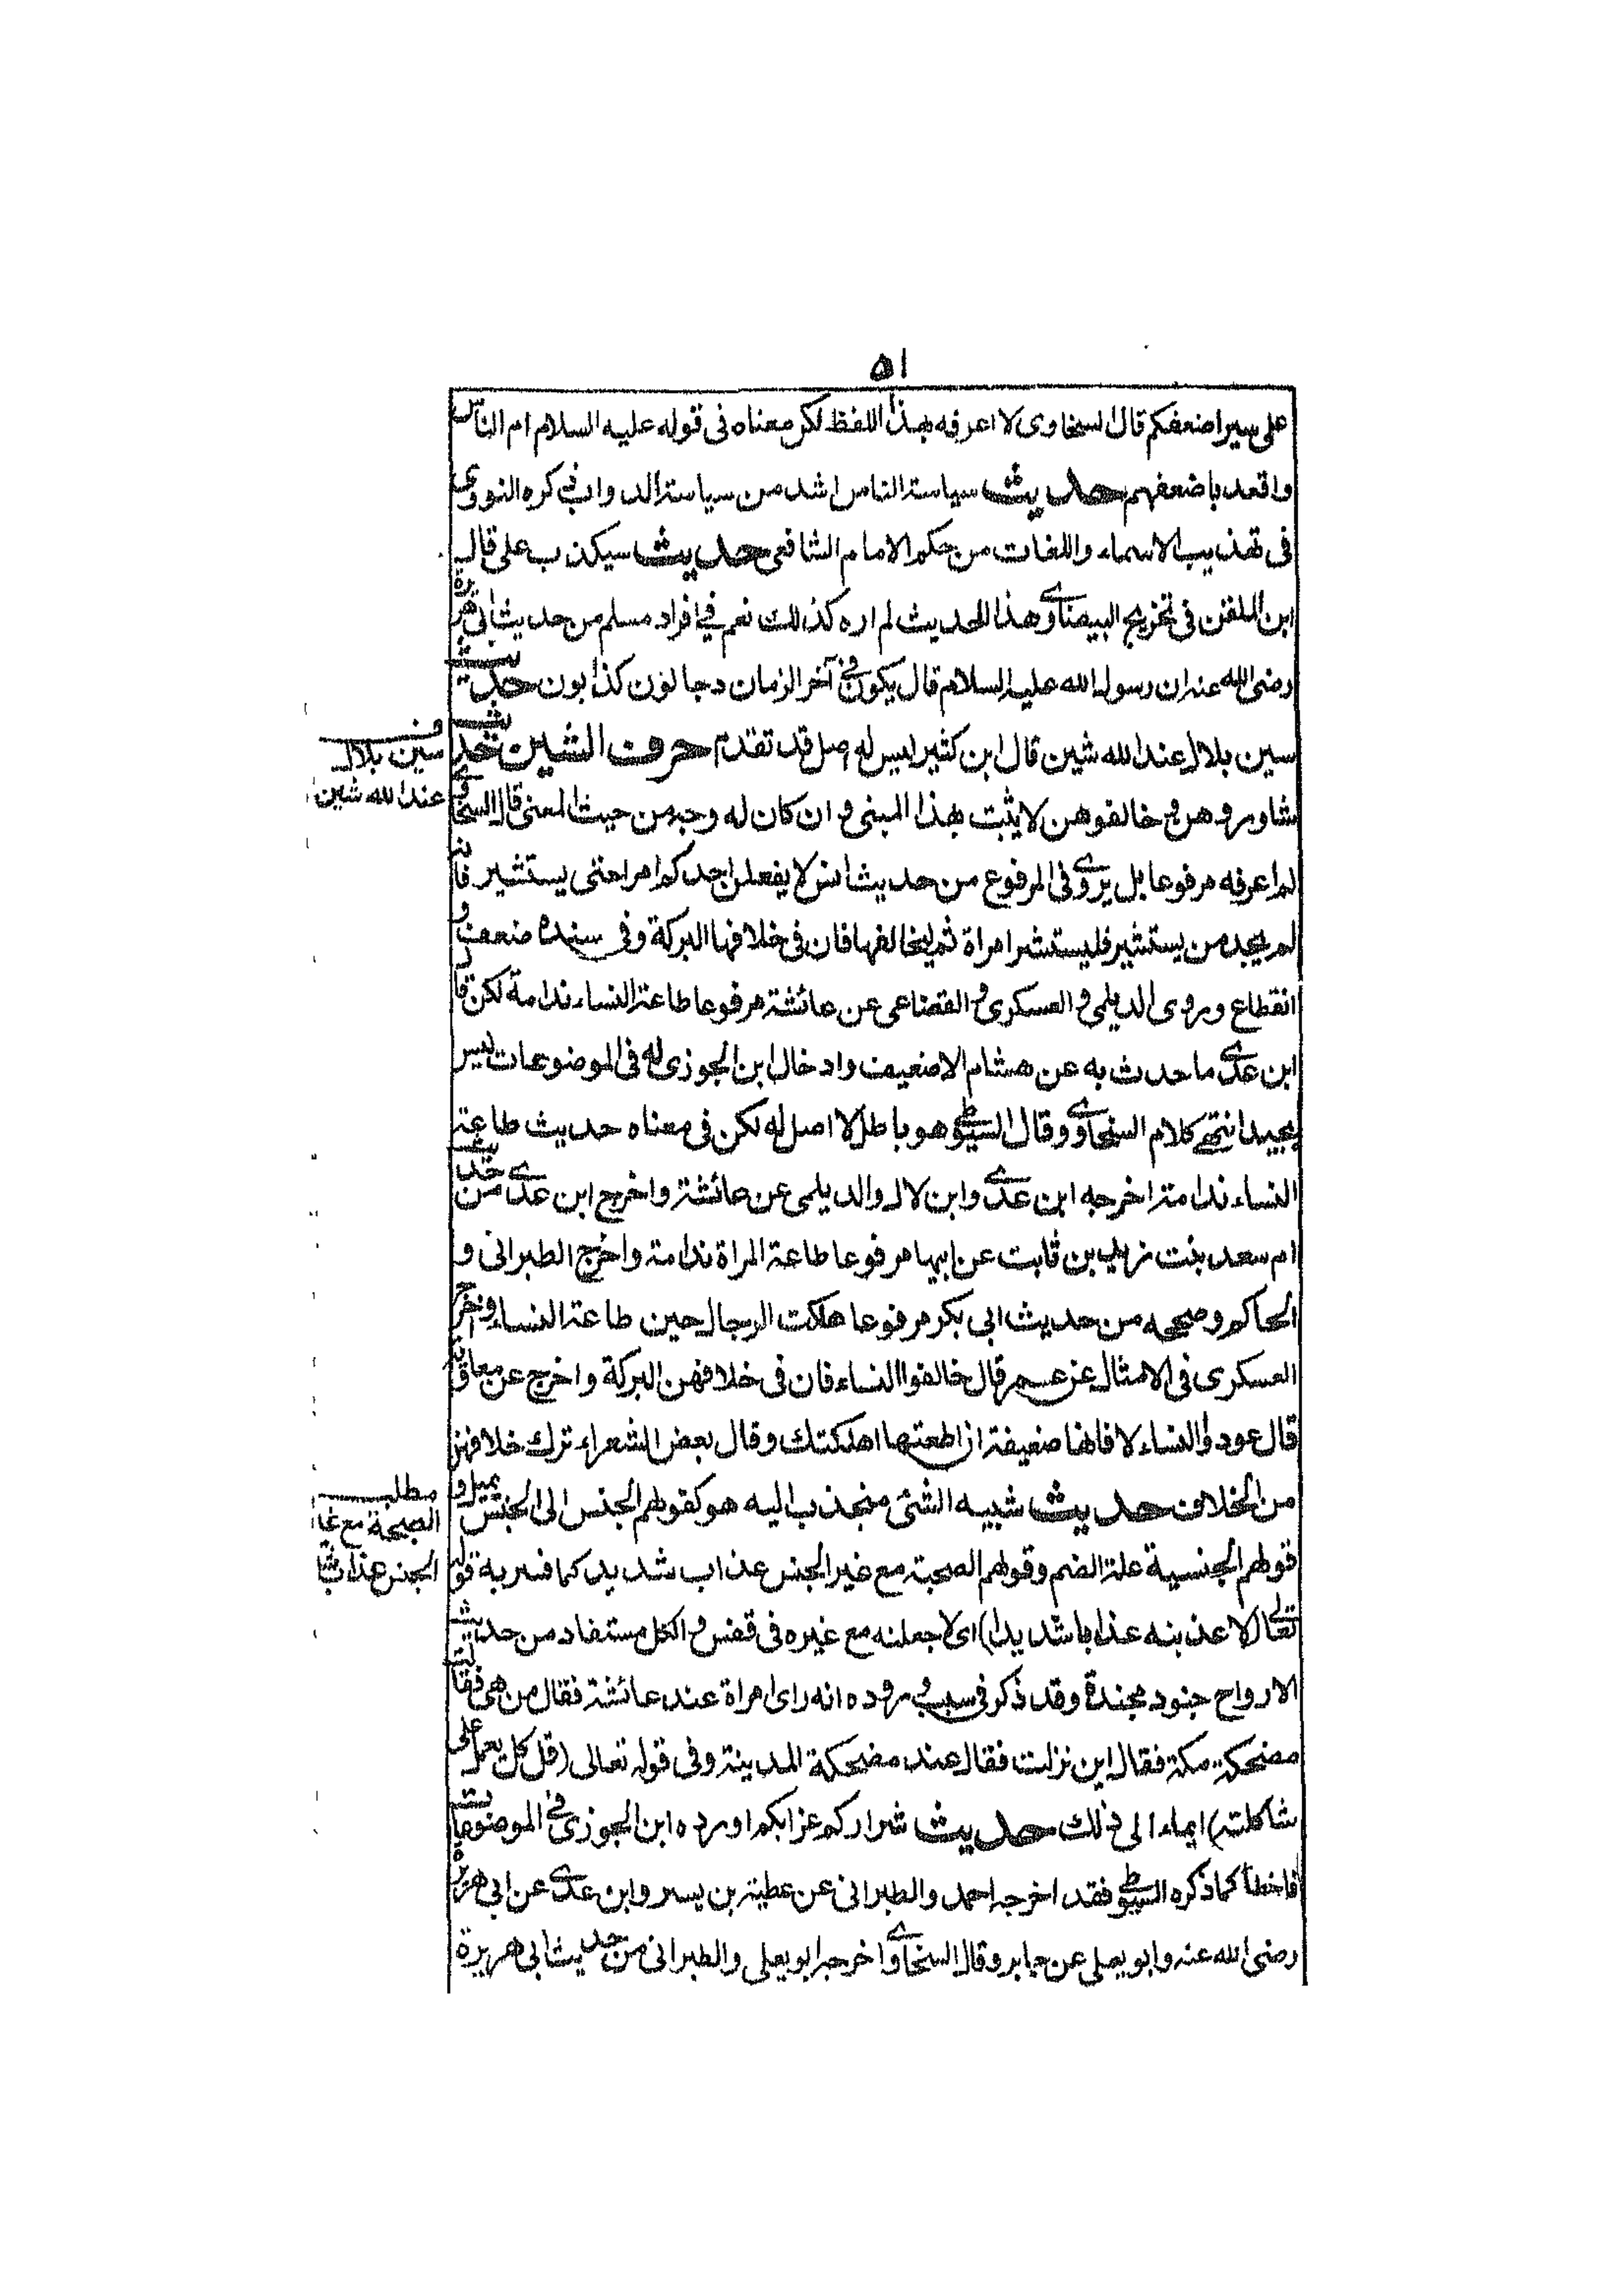 ٥١
على سيراضعفكم قال السخاوى لا اعرفه بهذا اللفظ لكن معناه فى قوله عليه السلام ام الناس
واقعد باضعفهم حديث سياسة الناس اشد من سياسة الدواب ذكره النووى
فى تهذيب الاسماء واللغات من حكم الامام الشافعى حديث سيكذب على قال
ابن الملقن فى تخريج البيضاوى هذا الحديث لم اره كذلك نعم فى افراد مسلم من حديث ابى هريرة
رضى الله عنه ان رسول الله عليه السلام قال يكون فى آخر الزمان دجالون كذابون حديث
سين بلال عند الله شين قال ابن كثير ليس له اصل قد تقدم حرف الشين حديث
شاوروهن وخالفوهن لا يثبت بهذا المبنى وان كان له وجه من حيث المعنى قال السخاوى
لم اعرفه مرفوعا بل يروى فى المرفوع من حديث انس لا يفعلن احدكم امرا حتى يستشير فان
لم يجد من يستشير فليستشر امراة ثم ليخالفها فان فى خلافها البركة وفى سنده ضعف و
انقطاع وروى الديلمى والعسكرى والقضاعى عن عائشة مرفوعا طاعة النساء ندامة لكن قال
ابن عدى ما حدث به عن هشام الا ضعيف وادخال ابن الجوزى له فى الموضوعات ليس
بجيد انتهى كلام السخاوى وقال السيوطى هو باطل لا اصل له لكن فى معناه حديث طاعة
النساء ندامة اخرجه ابن عدى وابن لال والديلمى عن عائشة واخرج ابن عدى من حديث
ام سعد بنت زيد بن ثابت عن ابيها مرفوعا طاعة المراة ندامة واخرج الطبرانى و
الحاكم وصححه من حديث ابى بكر مرفوعا هلكت الرجال حين طاعة النساء واخرج
العسكرى فى الامثال عن عمر قال خالفوا النساء فان فى خلافهن البركة واخرج عن معاوية
قال عودوا النساء لا فانها ضعيفة ان اطعتها اهلكتك وقال بعض الشعراء ترك خلافهن
من الخلاف حديث شبيه الشئ منجذب اليه هو كقولهم الجنس الى الجنس يميل و
قولهم الجنسية علة الضم وقولهم الصحبة مع غير الجنس عذاب شديد كما فسر به قوله
تعالى (لاعذبنه عذابا شديدا) اى لاجعلنه مع غيره فى قفس والكل مستفاد من حديث
الارواح جنود مجندة وقد ذكر فى سبب وروده انه راى امراة عند عائشة فقال من هى فقالت
مضحكة مكة فقال اين نزلت فقال عند مضحكة المدينة وفى قوله تعالى (قل كل يعمل على
شاكلته) ايماء الى ذلك حديث شراركم عزابكم اورده ابن الجوزى فى الموضوعات
فاخطأ كما ذكره السيوطى فقد اخرجه احمد والطبرانى عن عطية بن يسر وابن عدى عن ابى هريرة
رضى الله عنه وابو يعلى عن جابر وقال السخاوى اخرجه ابو يعلى والطبرانى من حديث ابى هريرة
سين بلال
عند الله شين
مطلب
الصبحة مع
الجنس عذاب